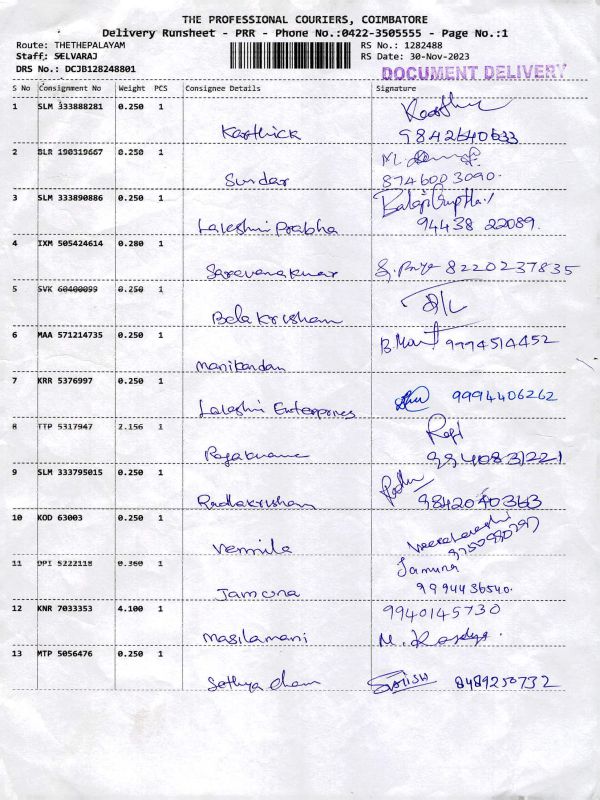 THE PROFESSIONAL COURIERS, COIMBATORE
Delivery Runsheet - PRR - Phone No.:0422-3505555 - Page No.:1
Route: THETHEPALAYAM RS No.: 1282488
Staff: SELVARAJ RS Date: 30-Nov-2023
DRS No.: DCJB128248801 DOCUMENT DELIVERY
S No Consignment No Weight PCS Consignee Details Signature
1 SLM 333888281 0.250 1
Karthick 9842640633
2 BLR 190319667 0.250 1 M.
Sundar 8746003090.
3 SLM 333890886 0.250 1 Balaji Guptha
Lakshmi Prabha 94438 22089.
4 IXM 505424614 0.280 1
Saravanakumar S. Priya 8220237835
5 SVK 60400099 0.250 1
Bala Krishnan
6 MAA 571214735 0.250 1 B. Mani 9994514452
Manikandan
7 KRR 5376997 0.250 1 9994406262
Lakshmi Enterprises
8 TTP 5317947 2.156 1 Raji
Rajakumar 9940831221
9 SLM 333795015 0.250 1 Radhu
Radhakrishnan 9842040363
10 KOD 63003 0.250 1
Vennila 9750980297
11 DPI 5222118 0.360 1 Jamuna
Jamuna 9994436540.
12 KNR 7033353 4.100 1 9940145730
Masilamani M.
13 MTP 5056476 0.250 1
Sathya Satish 8489250732